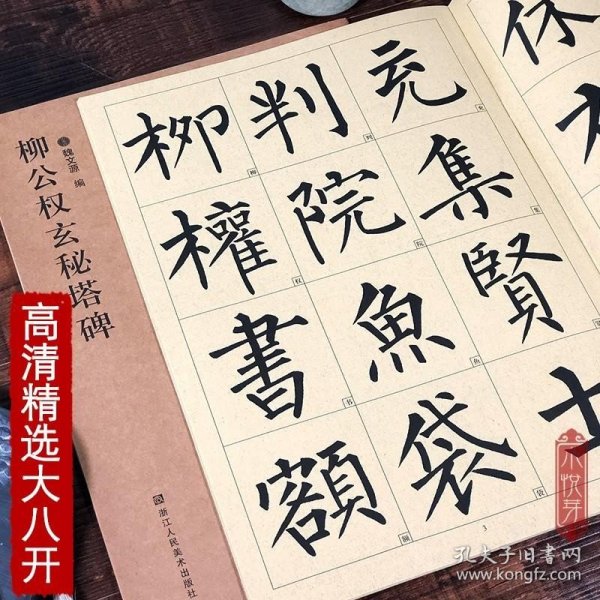 柳公权玄秘塔碑
魏文源 编
浙江人民美术出版社
高清精选大八开
休
充
集
賢
士
判
院
魚
袋
柳
權
書
額
充
集
柳
判
权
院
书
鱼
额
袋
3
木悦芽
孔夫子旧书网
www.kongfz.com